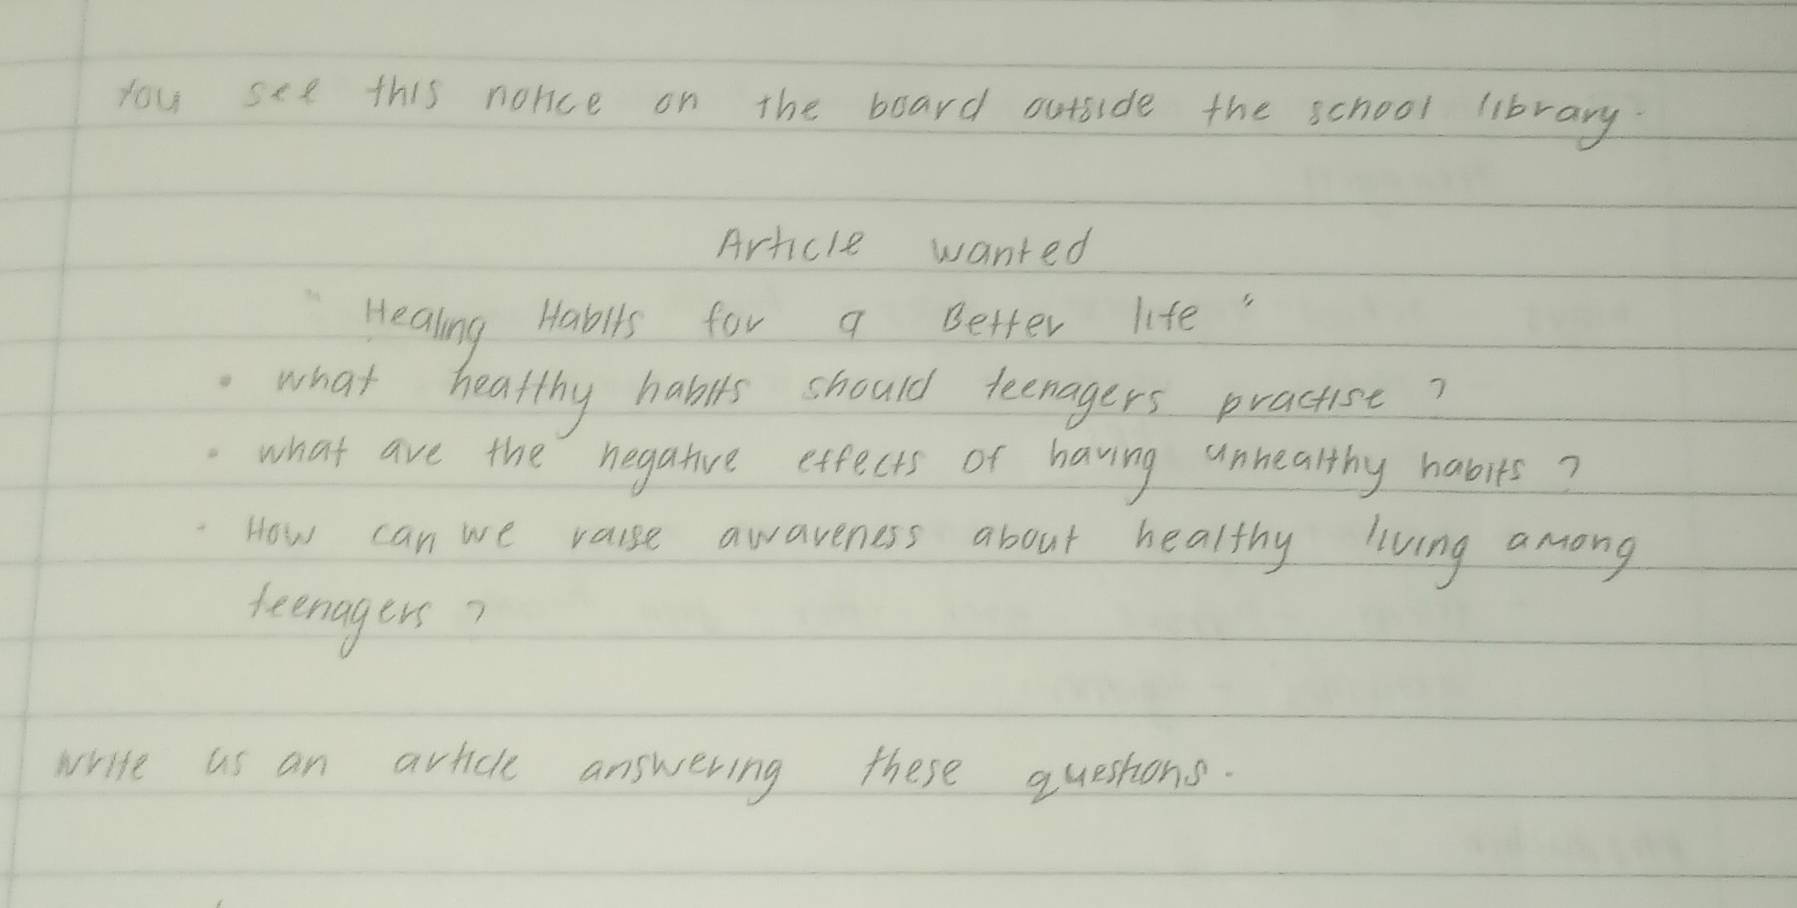 You see this notice on the board outside the school library.
Article wanted
"Healing Habits for a Better life"
• what healthy habits should teenagers practise?
• what are the negative effects of having unhealthy habits?
• How can we raise awareness about healthy living among
teenagers?
write us an article answering these questions.